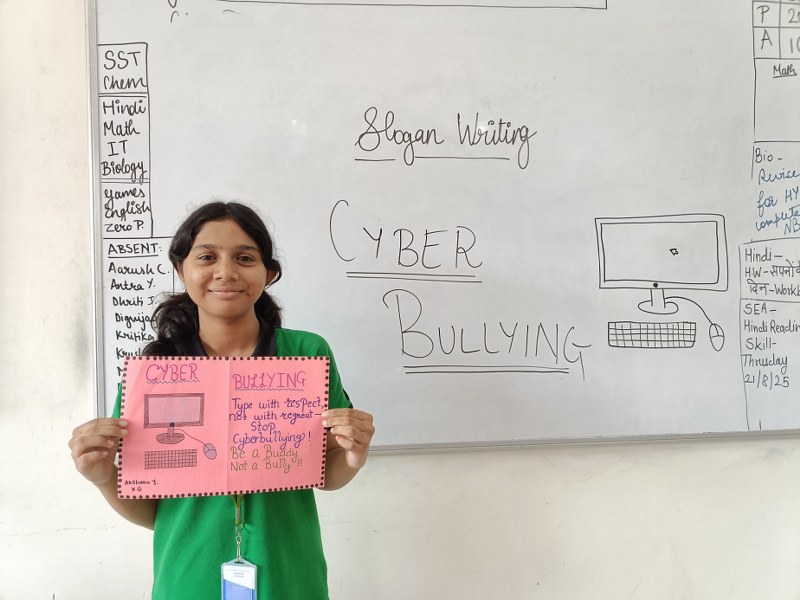 SST
Chem
Hindi
Math
IT
Biology
games
English
Zero P.
ABSENT:
Aarush C.
Antra Y.
Dhriti J.
Kritika
Slogan Writing
CYBER
BULLYING
P
A
Math
Bio-
Revise
for HY
complete
NB
Hindi-
H.W-सपनों
दिन-Workb
SEA-
Hindi Readin
Skill-
Thrusday
21/8/25
CYBER
BULLYING
Type with respect,
not with regreat-
Stop
Cyberbullying!
Be a Buddy
Not a Bully"!!
X G